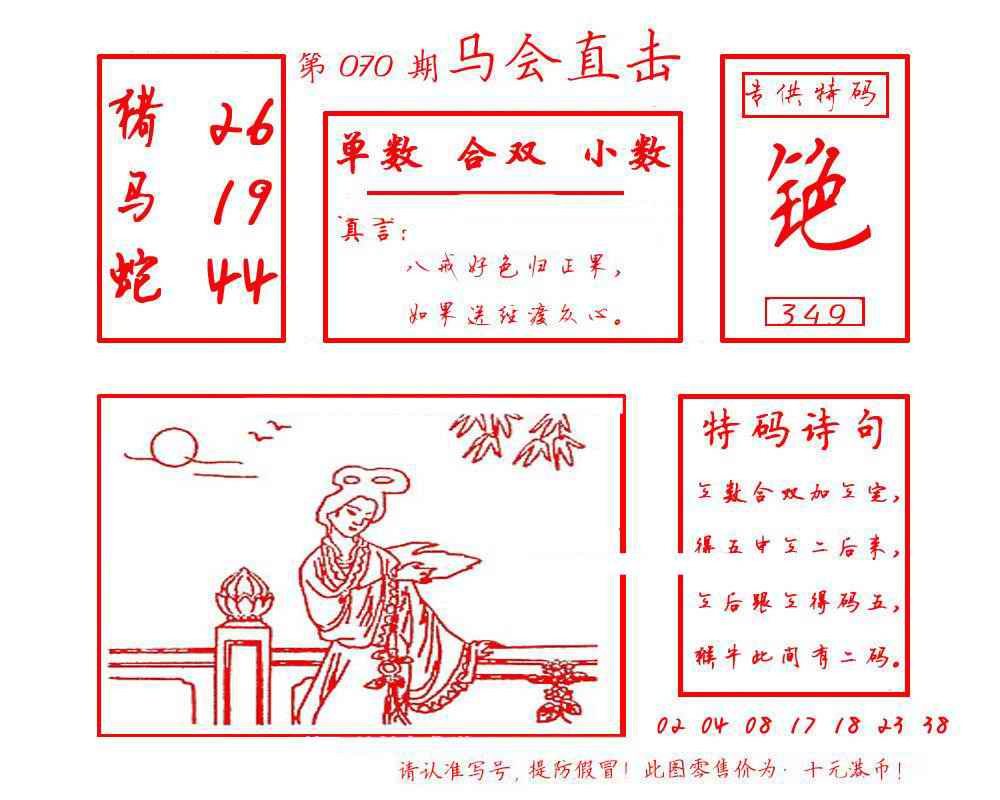 第070期马会直击
猪 26
马 19
蛇 44
单数 合双 小数
真言:
八戒好色归正果,
如果送经渡众心。
专供特码
349
特码诗句
数合双加 定,
得五中 二后来,
后跟 得码五,
猴牛此间有二码。
02 04 08 17 18 23 38
请认准写号,提防假冒!此图零售价为·十元港币!